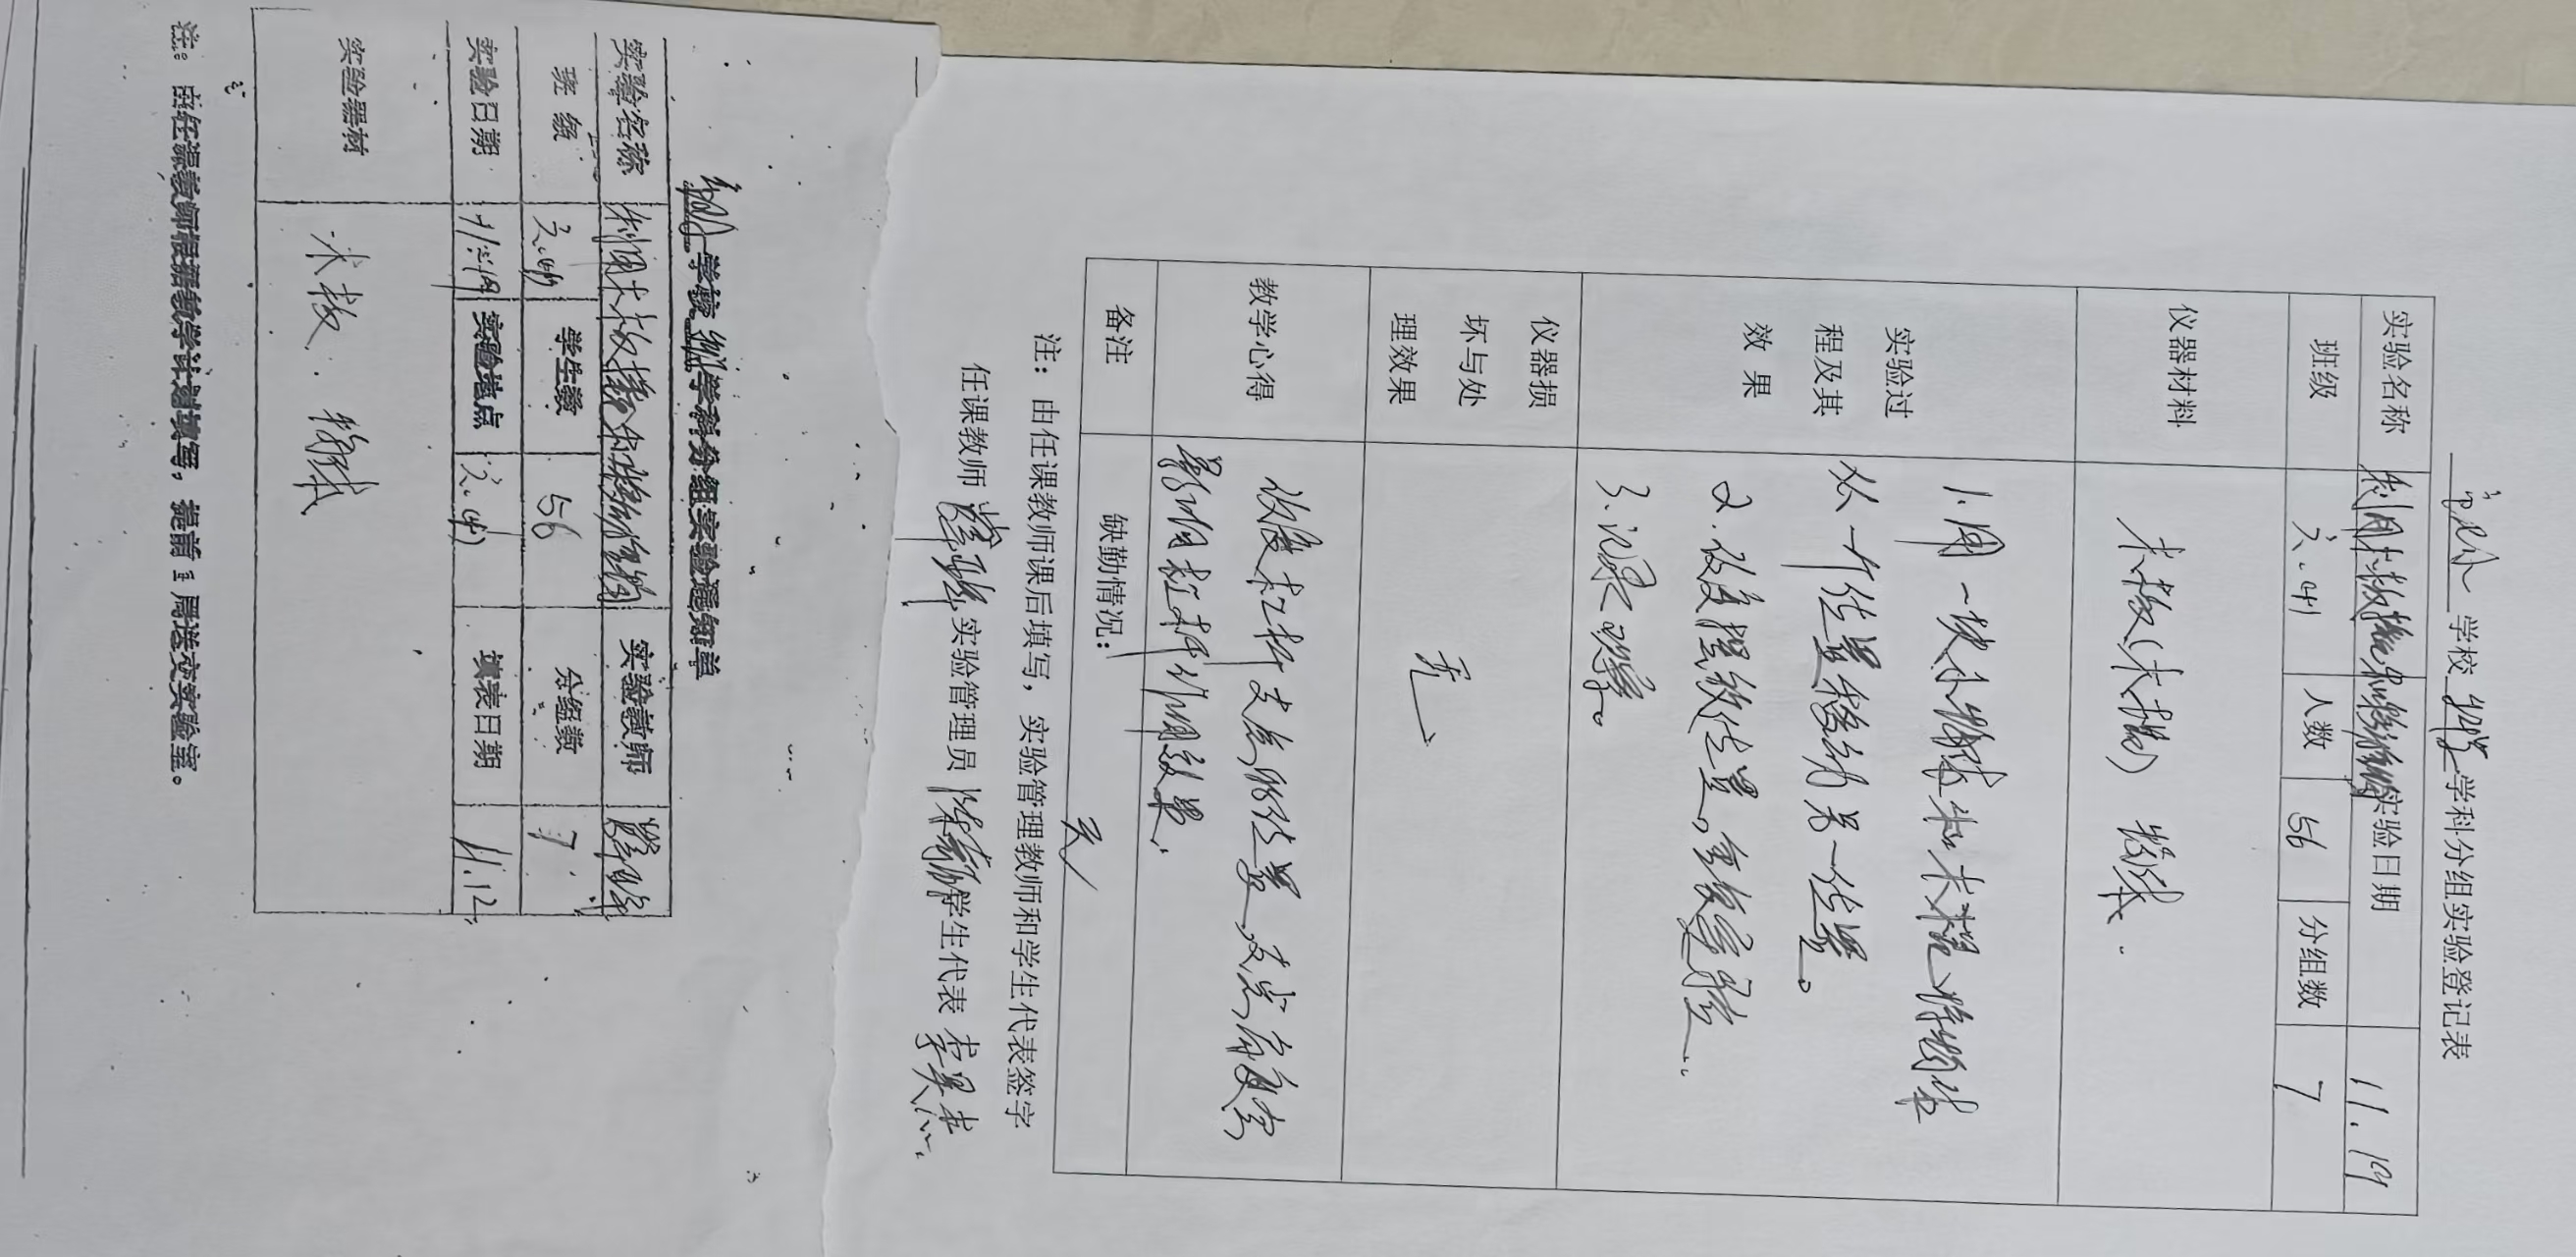 学校 科学 学科分组实验登记表
实验名称 利用木板撬 实验日期 11.19
班级 六.四 人数 56 分组数 7
仪器材料 木板(木棍) 粉笔
实验过
程及其
效 果
1.用一块小粉笔和木棍将粉笔
从一个位置移动另一位置。
2.改变摆放位置。重复实验
3.记录现象。
仪器损
坏与处
理效果
无
教学心得
改变杠杆支点的位置,支点角度会
影响杠杆作用效果。
备注 缺勤情况: 无
注:由任课教师课后填写,实验管理教师和学生代表签字
任课教师 实验管理员 学生代表
学校 学科分组实验通知单
实验名称 利用木板撬 实验教师
班 级 六.四 学生数 56 分组数 7
实验日期 11.19 实验地点 六.四 填表日期 11.12
实验器材 木板.粉笔
注:由任课教师根据教学计划填写,提前1周送交实验室。